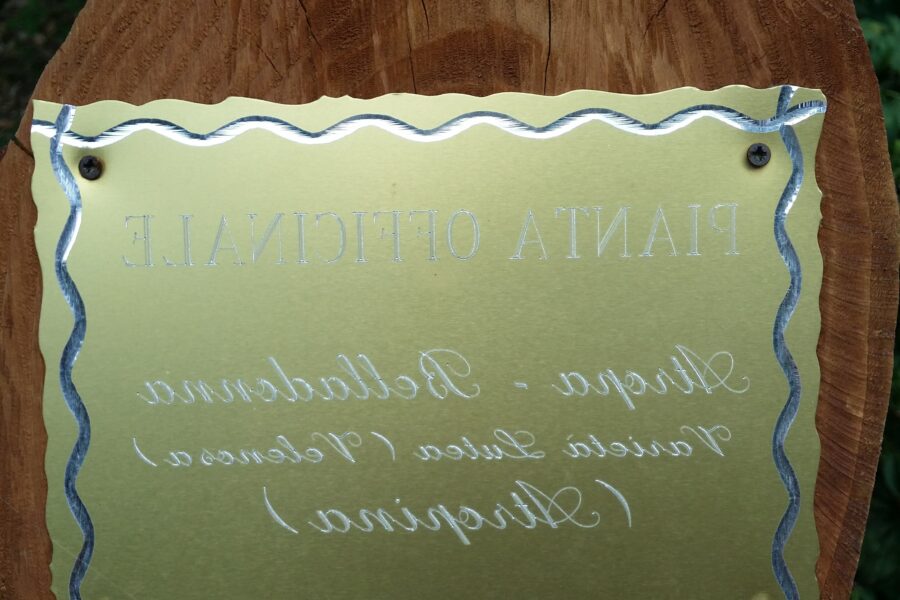 PIANTA OFFICINALE
Atropa - Belladonna
Varietà Lutea (Velenosa)
(Atropina)